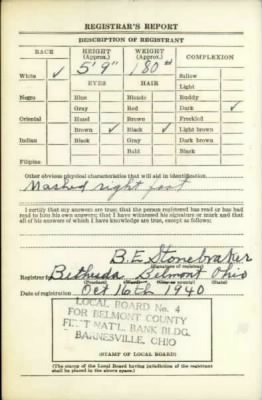 REGISTRAR'S REPORT
DESCRIPTION OF REGISTRANT
RACE HEIGHT (Approx.) WEIGHT (Approx.) COMPLEXION
5' 9" 180
White ✓ Sallow
EYES HAIR Light
Negro Blue Blonde Ruddy
Gray Red Dark ✓
Oriental Hazel Brown Freckled
Brown ✓ Black ✓ Light brown
Indian Black Gray Dark brown
Bald Black
Filipino
Other obvious physical characteristics that will aid in identification
Mashed right foot
I certify that my answers are true; that the person registered has read or has had
read to him his own answers; that I have witnessed his signature or mark and that
all of his answers of which I have knowledge are true, except as follows:
B. E. Stonebraker
(Signature of registrar)
Registrar for Bethesda Belmont Ohio
(Precinct) (State)
Date of registration Oct 16th 1940
LOCAL BOARD No. 4
FOR BELMONT COUNTY
FIRST NAT'L. BANK BLDG.
BARNESVILLE, OHIO
(STAMP OF LOCAL BOARD)
(The stamp of the Local Board having jurisdiction of the registrant
shall be placed in the above space.)